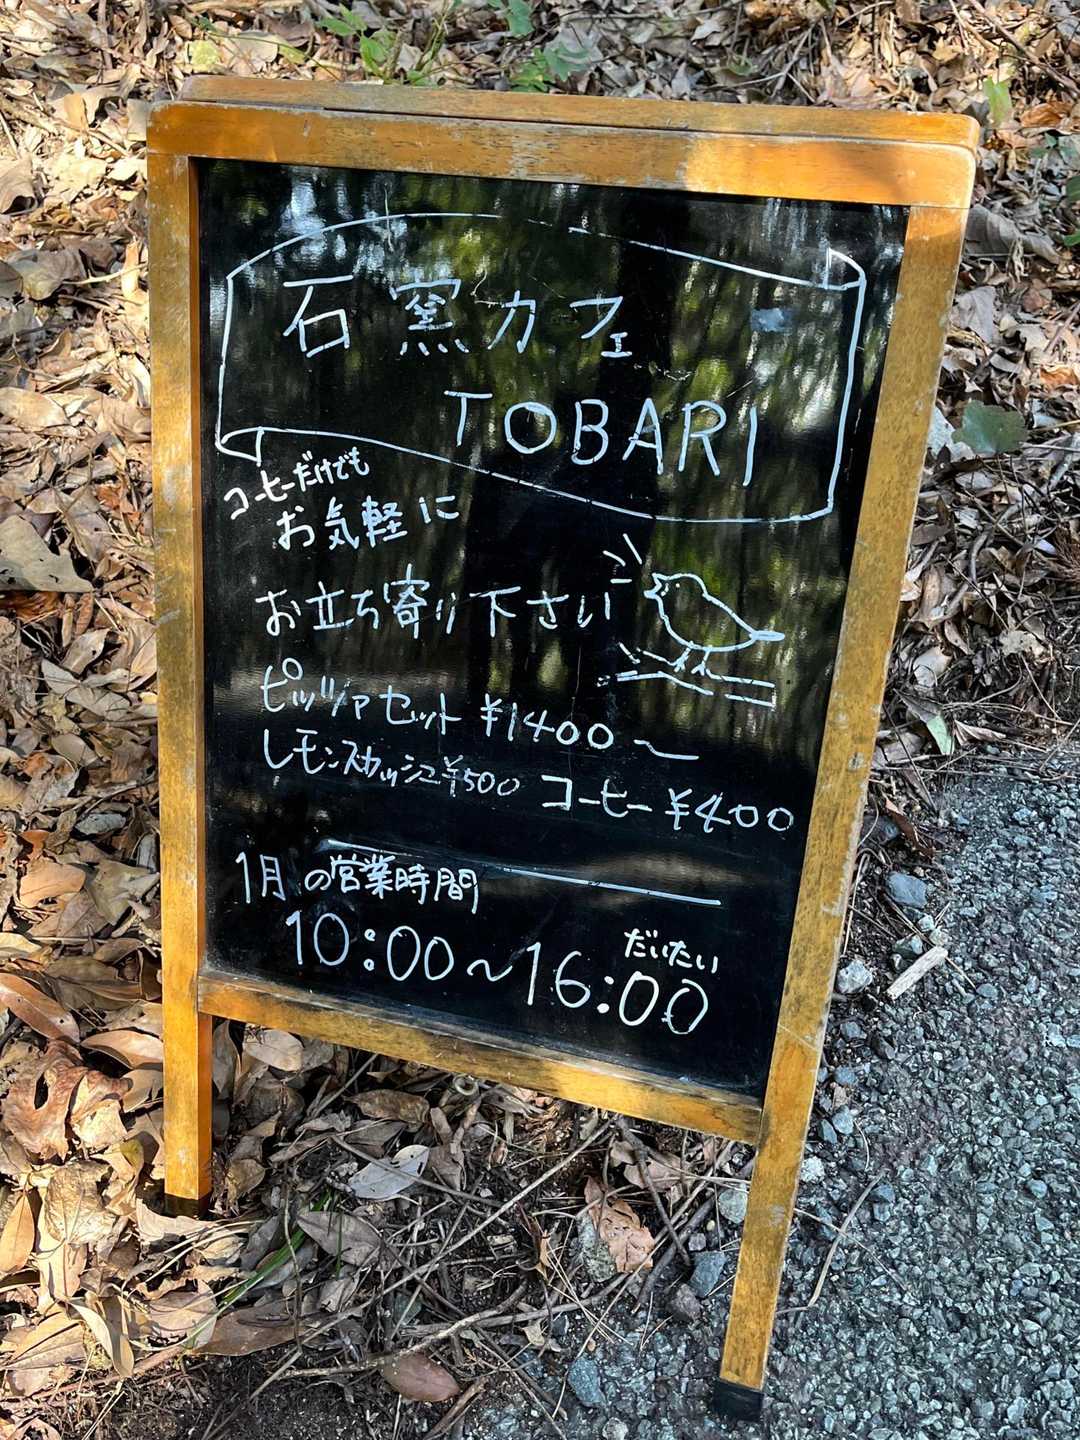 石窯カフェ
TOBARI
コーヒーだけでも
お気軽に
お立ち寄り下さい
ピッツァセット ¥1400〜
レモンスカッシュ¥500 コーヒー ¥400
1月の営業時間
だいたい
10:00〜16:00